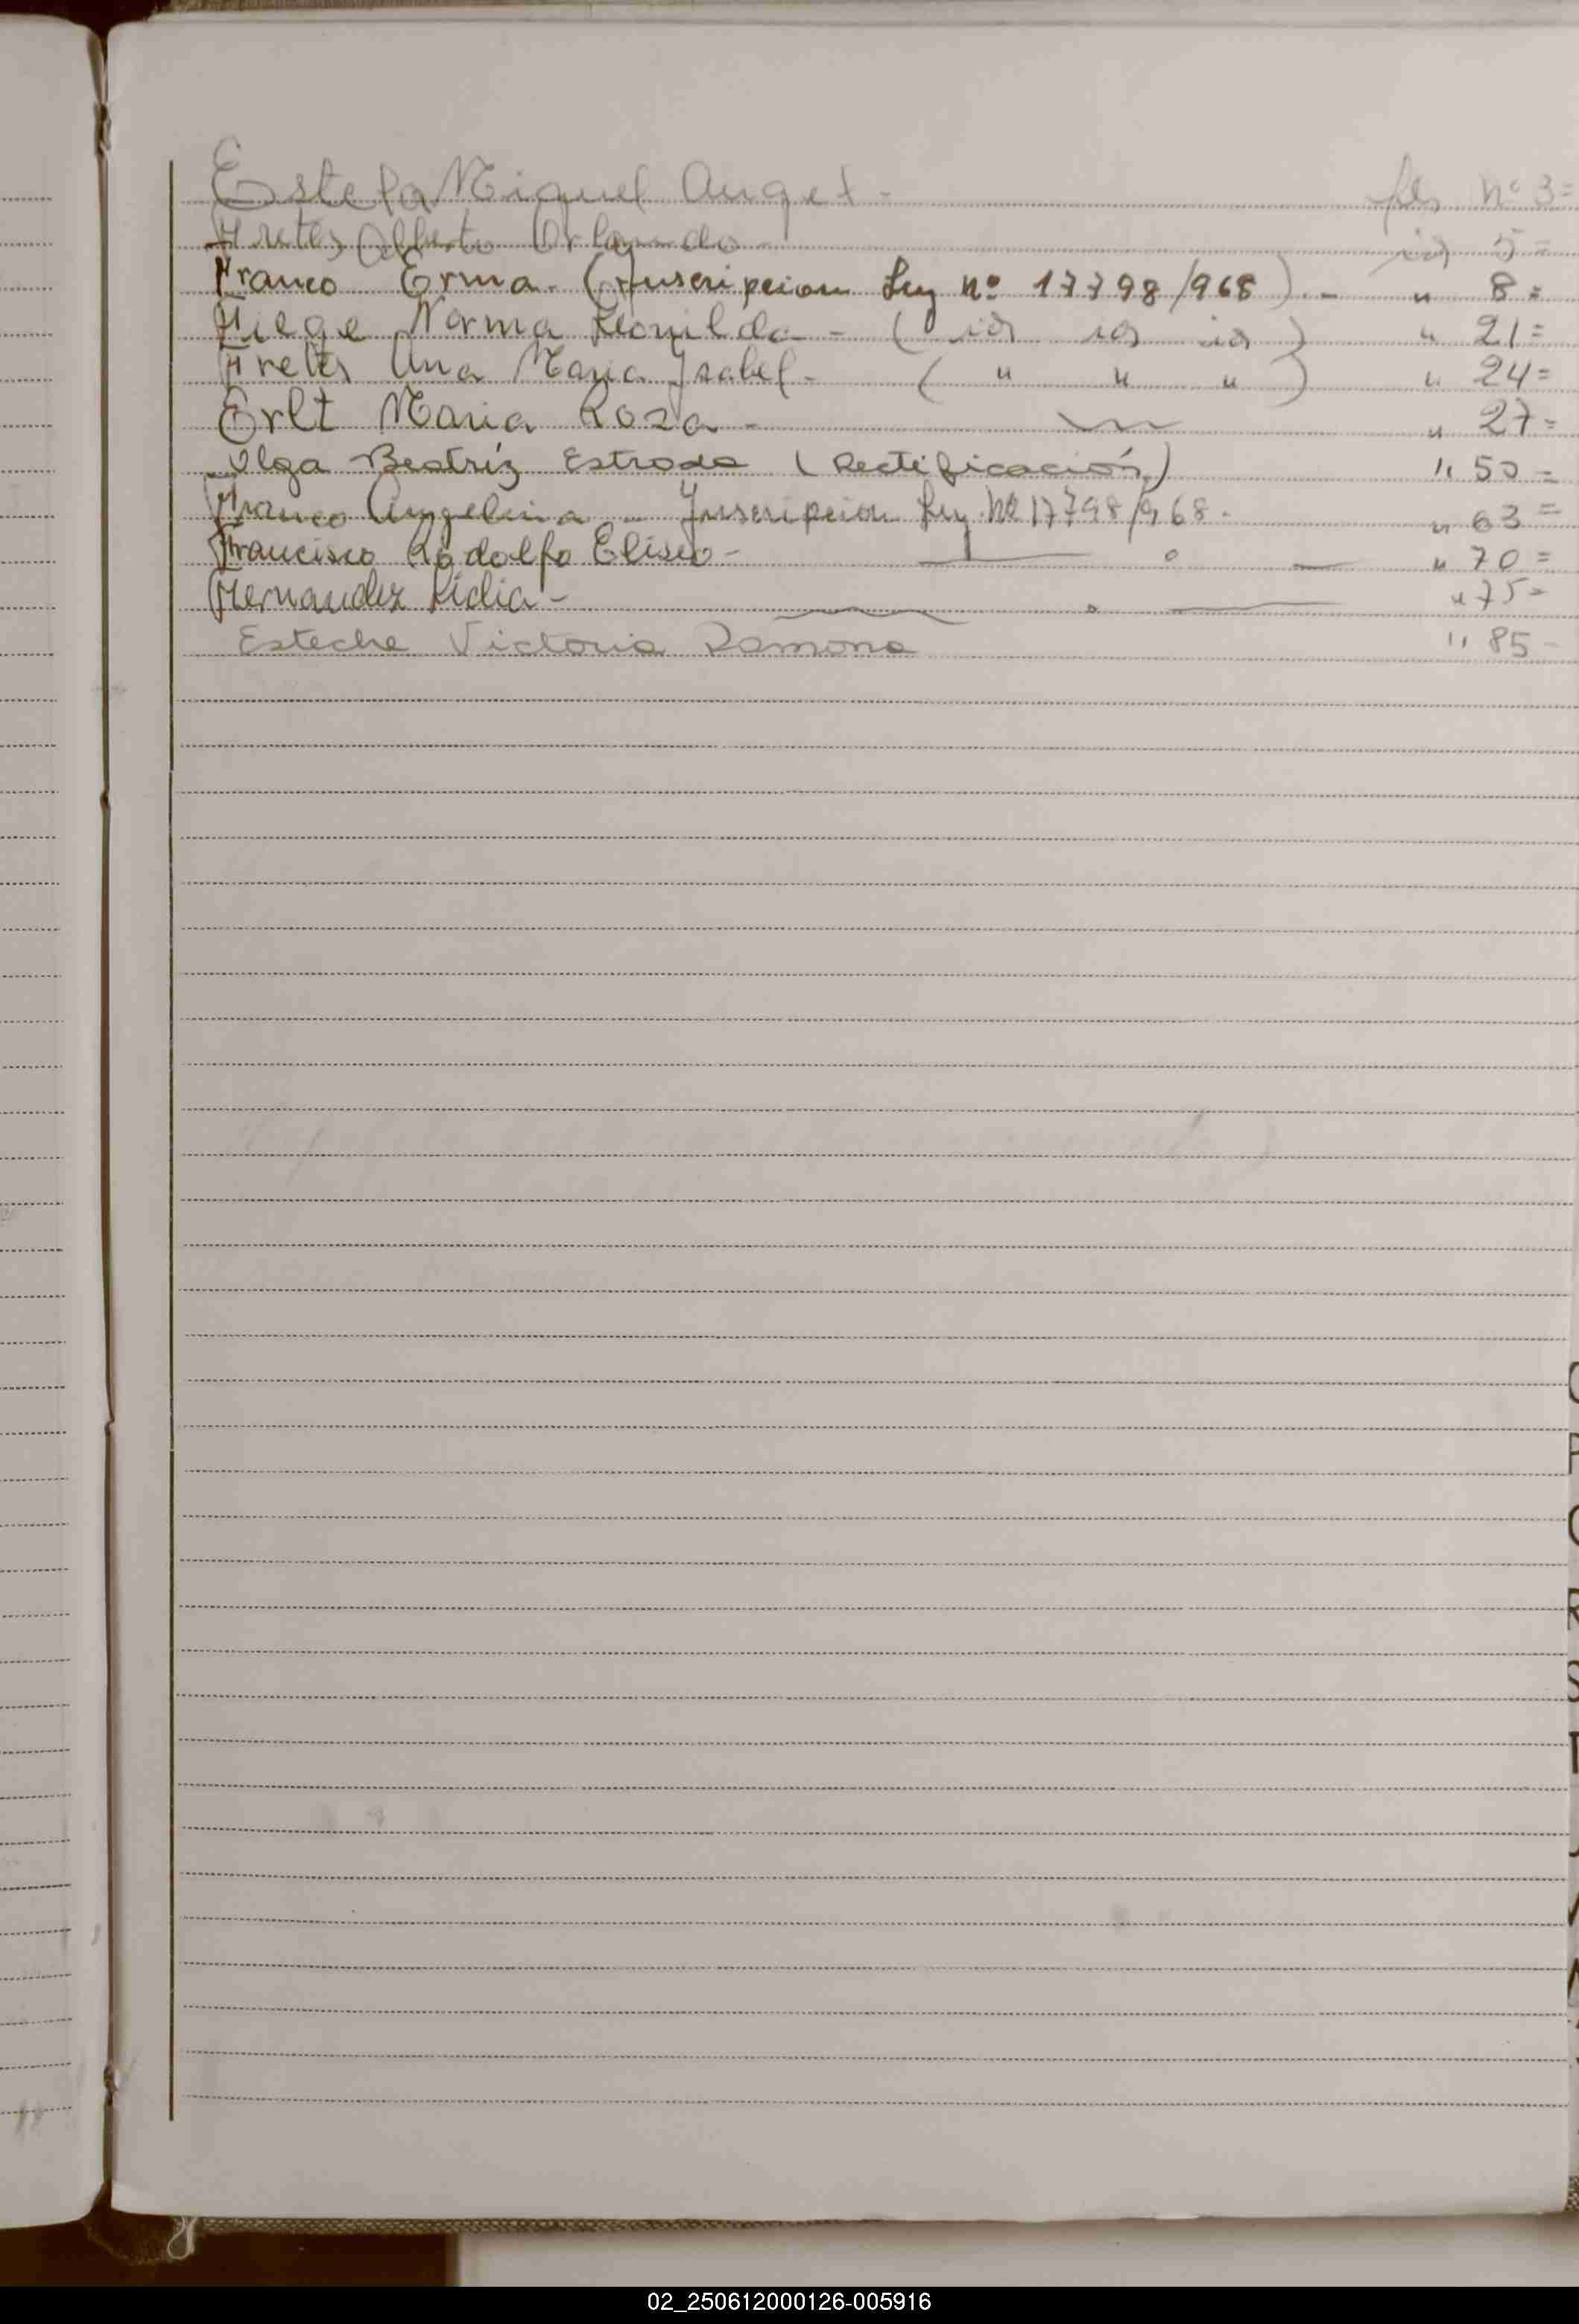 Estefa Miguel Angel - fls nº 3=
Fretes Alberto Orlando - id 5=
Franco Erma. (Inscripcion Ley nº 17798/968). - " 8=
Fiege Norma Leonilda - ( id id id ) " 21=
Fretes Ana Maria Isabel - ( " " " ) " 24=
Erlt Maria Rosa - " 27=
Olga Beatríz Estrada (Rectificación) " 50=
Franco Angelina - Inscripcion Ley Nº 17798/968. " 63=
Francisco Rodolfo Eliseo - " 70=
Fernandez Lidia - " 75=
Esteche Victoria Ramona " 85-
O
P
Q
R
S
T
02_250612000126-005916